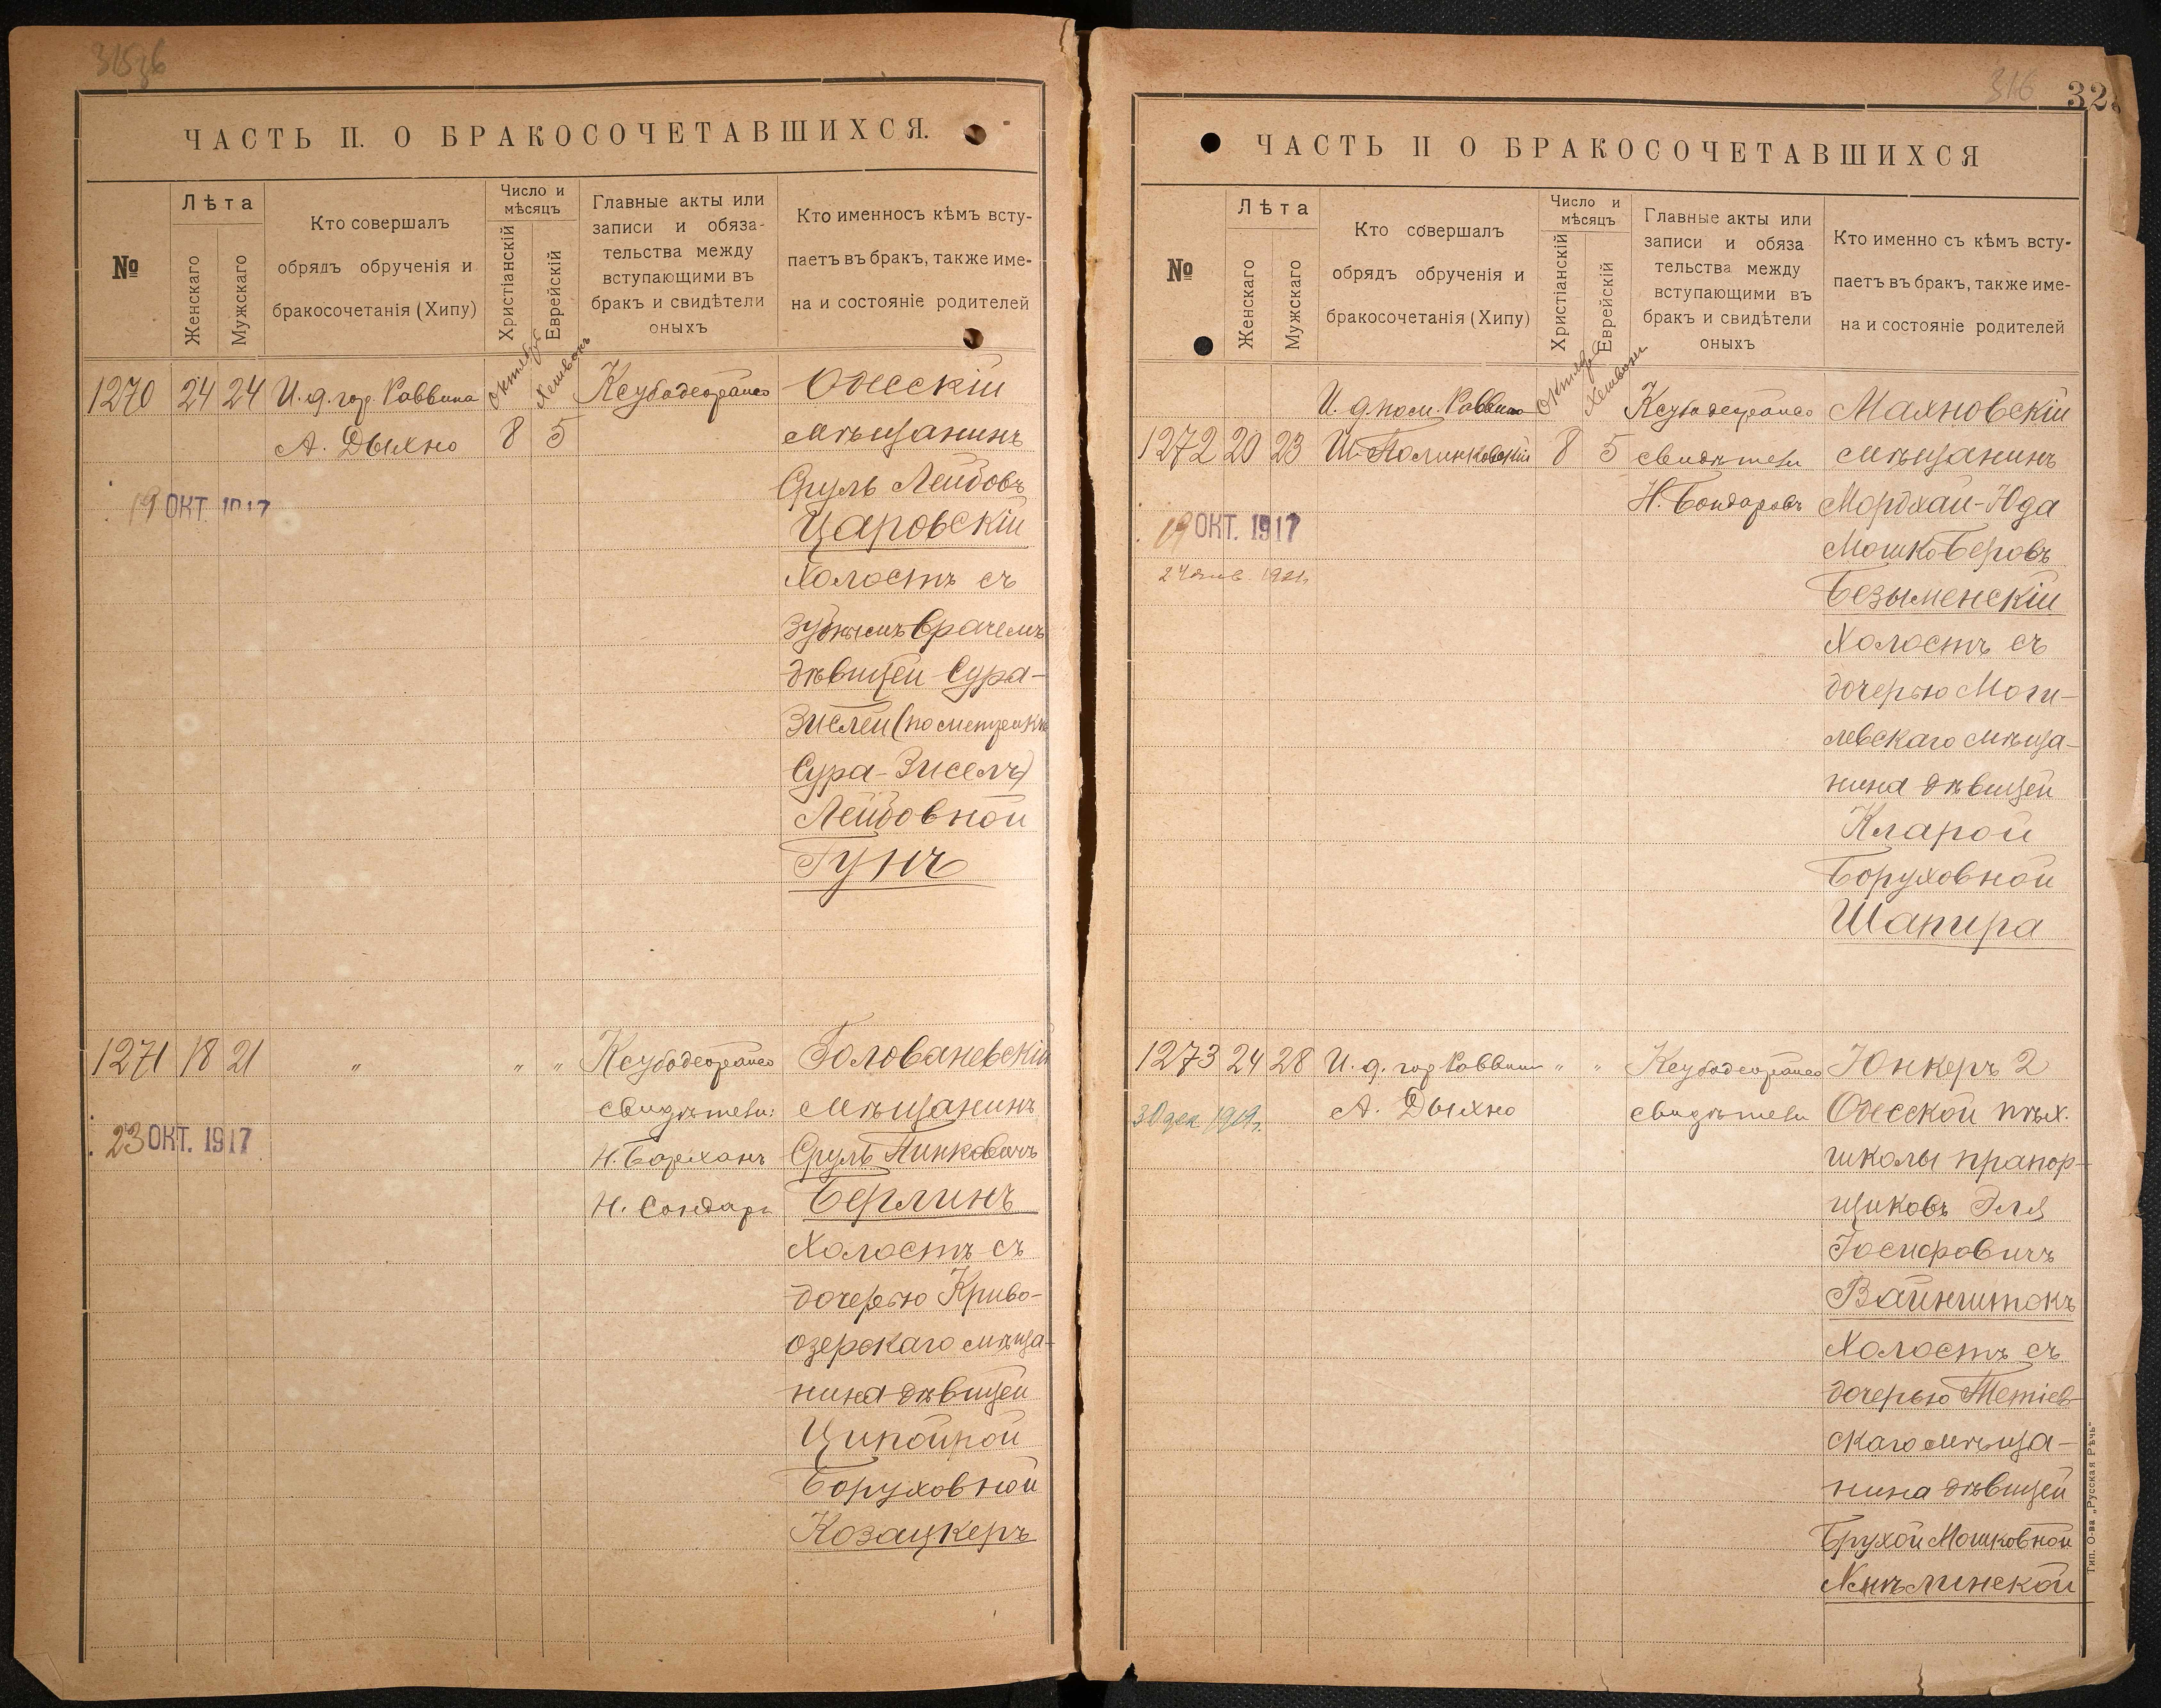 ЧАСТЬ II. О БРАКОСОЧЕТАВШИХСЯ.
№
Лѣта
Женскаго
Мужскаго
Кто совершалъ
обрядъ обрученія и
бракосочетанія (Хипу)
Число и
мѣсяцъ
Христіанскій
Еврейскій
Главные акты или
записи и обяза-
тельства между
вступающими въ
бракъ и свидѣтели
оныхъ
Кто именносъ кѣмъ всту-
паетъ въ бракъ, также име-
на и состояніе родителей
1270 24 24 И. д. гор. Раввина
А. Дыхно
Октябрь
8
Хешвонъ
5
19 ОКТ. 1917
Одесскій
мѣщанинъ
Сруль Лейбовъ
Царовскій
Холостъ съ
зубнымъ врачемъ
дѣвицей Сура-
Зислей (по метрикѣ
Сура-Зисель)
Лейбовной
Гунъ
1271 18 21 " " "
23 ОКТ. 1917
свидѣтели:
Н. Барханъ
Н. Бондарь
Голованевскій
мѣщанинъ
Сруль Пинковичъ
Берлинъ
Холостъ съ
дочерью Криво-
озерскаго мѣща-
нина дѣвицей
Ципойрой
Боруховной
Козацкеръ
316
32
ЧАСТЬ II О БРАКОСОЧЕТАВШИХСЯ
№
Лѣта
Женскаго
Мужскаго
Кто совершалъ
обрядъ обрученія и
бракосочетанія (Хипу)
Число и
мѣсяцъ
Христіанскій
Еврейскій
Главные акты или
записи и обяза
тельства между
вступающими въ
бракъ и свидѣтели
оныхъ
Кто именно съ кѣмъ всту-
паетъ въ бракъ, также име-
на и состояніе родителей
И. д. пом. Раввина
1272 20 23 Ш. Полинковскій
Октябрь
8
Хешвонъ
5
19 ОКТ. 1917
24 янв. 1921г.
свидѣтели
Н. Бондаровъ
Махновскій
мѣщанинъ
Мордхай-Юда
Мошко-Беровъ
Безыменскій
Холостъ съ
дочерью Моги-
левскаго мѣща-
нина дѣвицей
Кларой
Боруховной
Шапира
1273 24 28 И. д. гор. Раввина " "
А. Дыхно
30 дек. 1919г.
свидѣтели
Юнкеръ 2
Одесской пѣх.
школы прапор-
щиковъ Эля
Іосифовичъ
Вайнштокъ
Холостъ съ
дочерью Тетіев-
скаго мѣща-
нина дѣвицей
Брухой Мошковной
Тип. О-ва „Русская Рѣчь"